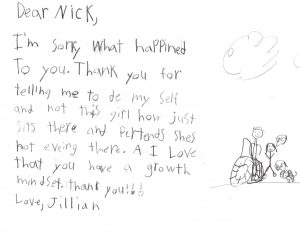 Dear Nick,
I'm sorry what happined
To you. Thank you for
telling me to de my self
and not this girl how just
sits there and pertends shes
not eveing there. A I Love
that you have a growth
mindset. thank you!!!
Love, Jillian